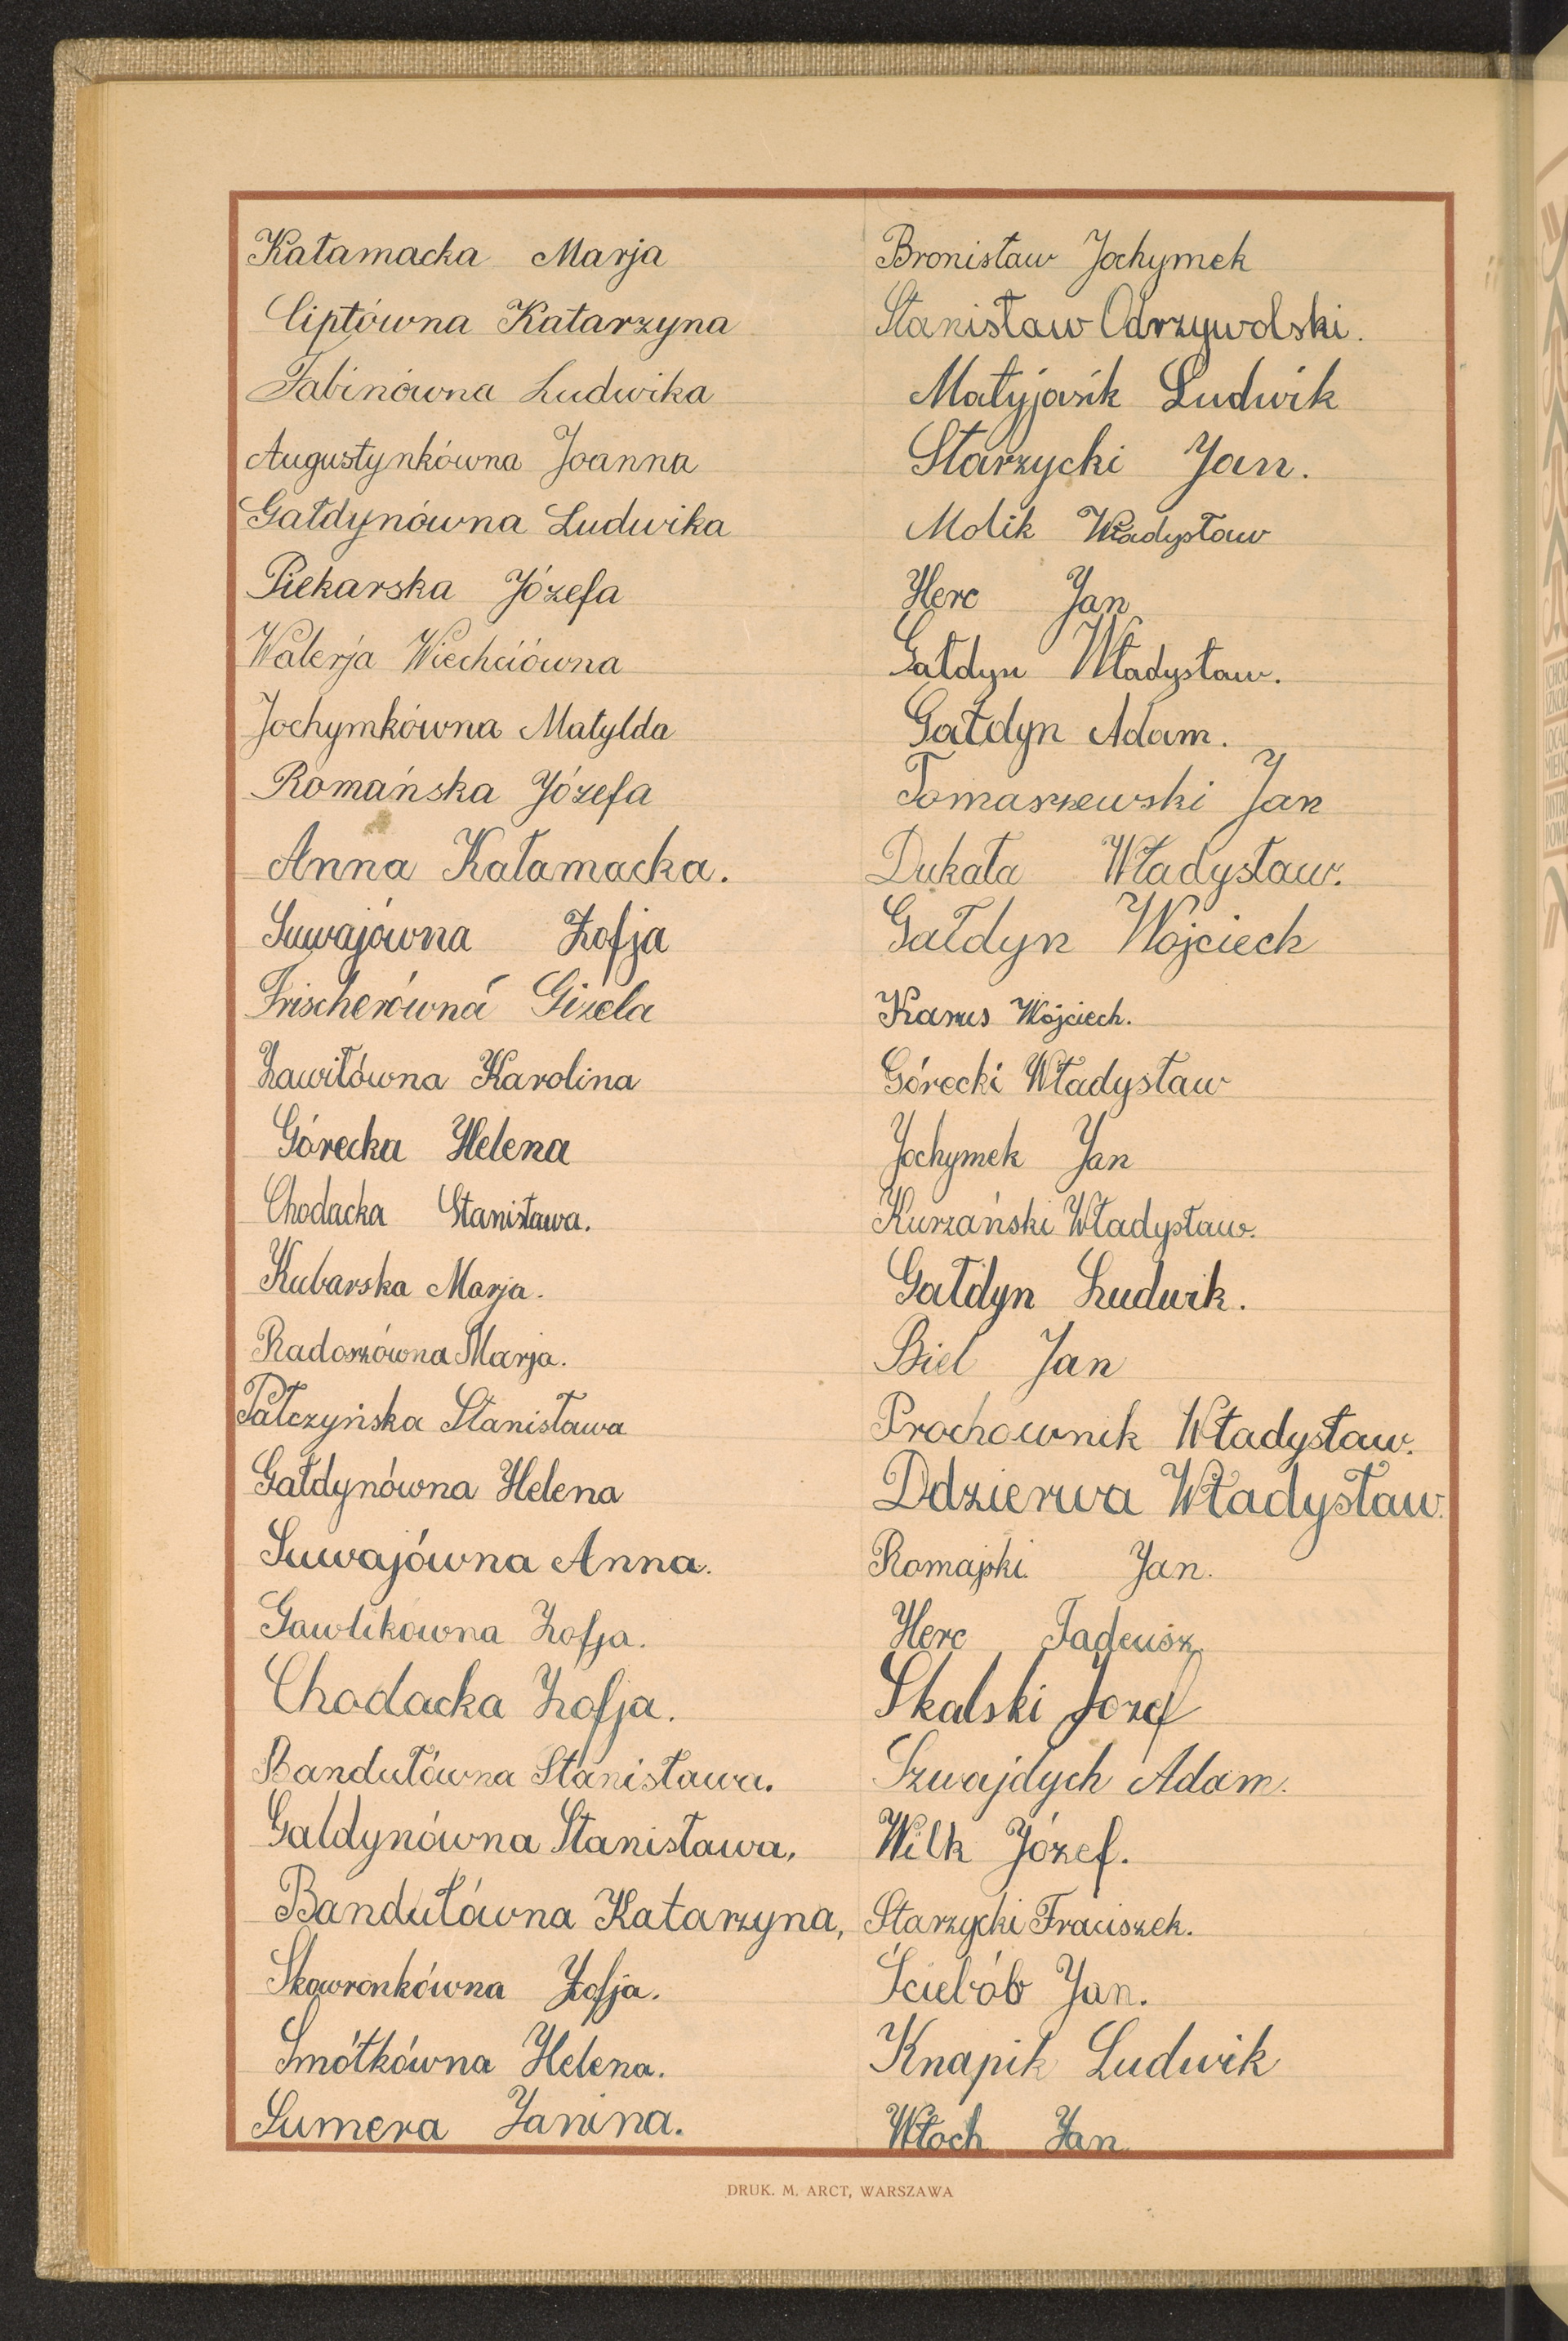 Kałamacka Marja
Ciptówna Katarzyna
Fabinówna Ludwika
Augustynkówna Joanna
Gałdynówna Ludwika
Piekarska Józefa
Walerja Wiechciówna
Jochymkówna Matylda
Romańska Józefa
Anna Kałamacka.
Suwajówna Zofja
Frischerówna Gizela
Zawiłówna Karolina
Górecka Helena
Chodacka Stanisława.
Kubarska Marja.
Radoszówna Marja.
Pałczyńska Stanisława
Gałdynówna Helena
Suwajówna Anna.
Gawlikówna Zofja.
Chodacka Zofja.
Bandułówna Stanisława.
Galdynówna Stanisława,
Bandułówna Katarzyna,
Skowronkówna Zofja.
Smółkówna Helena.
Sumera Janina.
Bronisław Jochymek
Stanisław Odrzywolski.
Matyjasik Ludwik
Starzycki Jan.
Molik Władysław
Herc Jan
Gałdyn Władysław.
Gałdyn Adam.
Tomaszewski Jan
Dukała Władysław.
Gałdyn Wojciech
Karus Wojciech.
Górecki Władysław
Jochymek Jan
Kurzański Władysław.
Gałdyn Ludwik.
Biel Jan
Prochownik Władysław.
Ddzierwa Władysław.
Jan.
Herc Tadeusz
Skalski Józef
Szwajdych Adam.
Wilk Józef.
Starzycki Fraciszek.
Ściebób Jan.
Knapik Ludwik
Włoch Jan
DRUK. M. ARCT, WARSZAWA